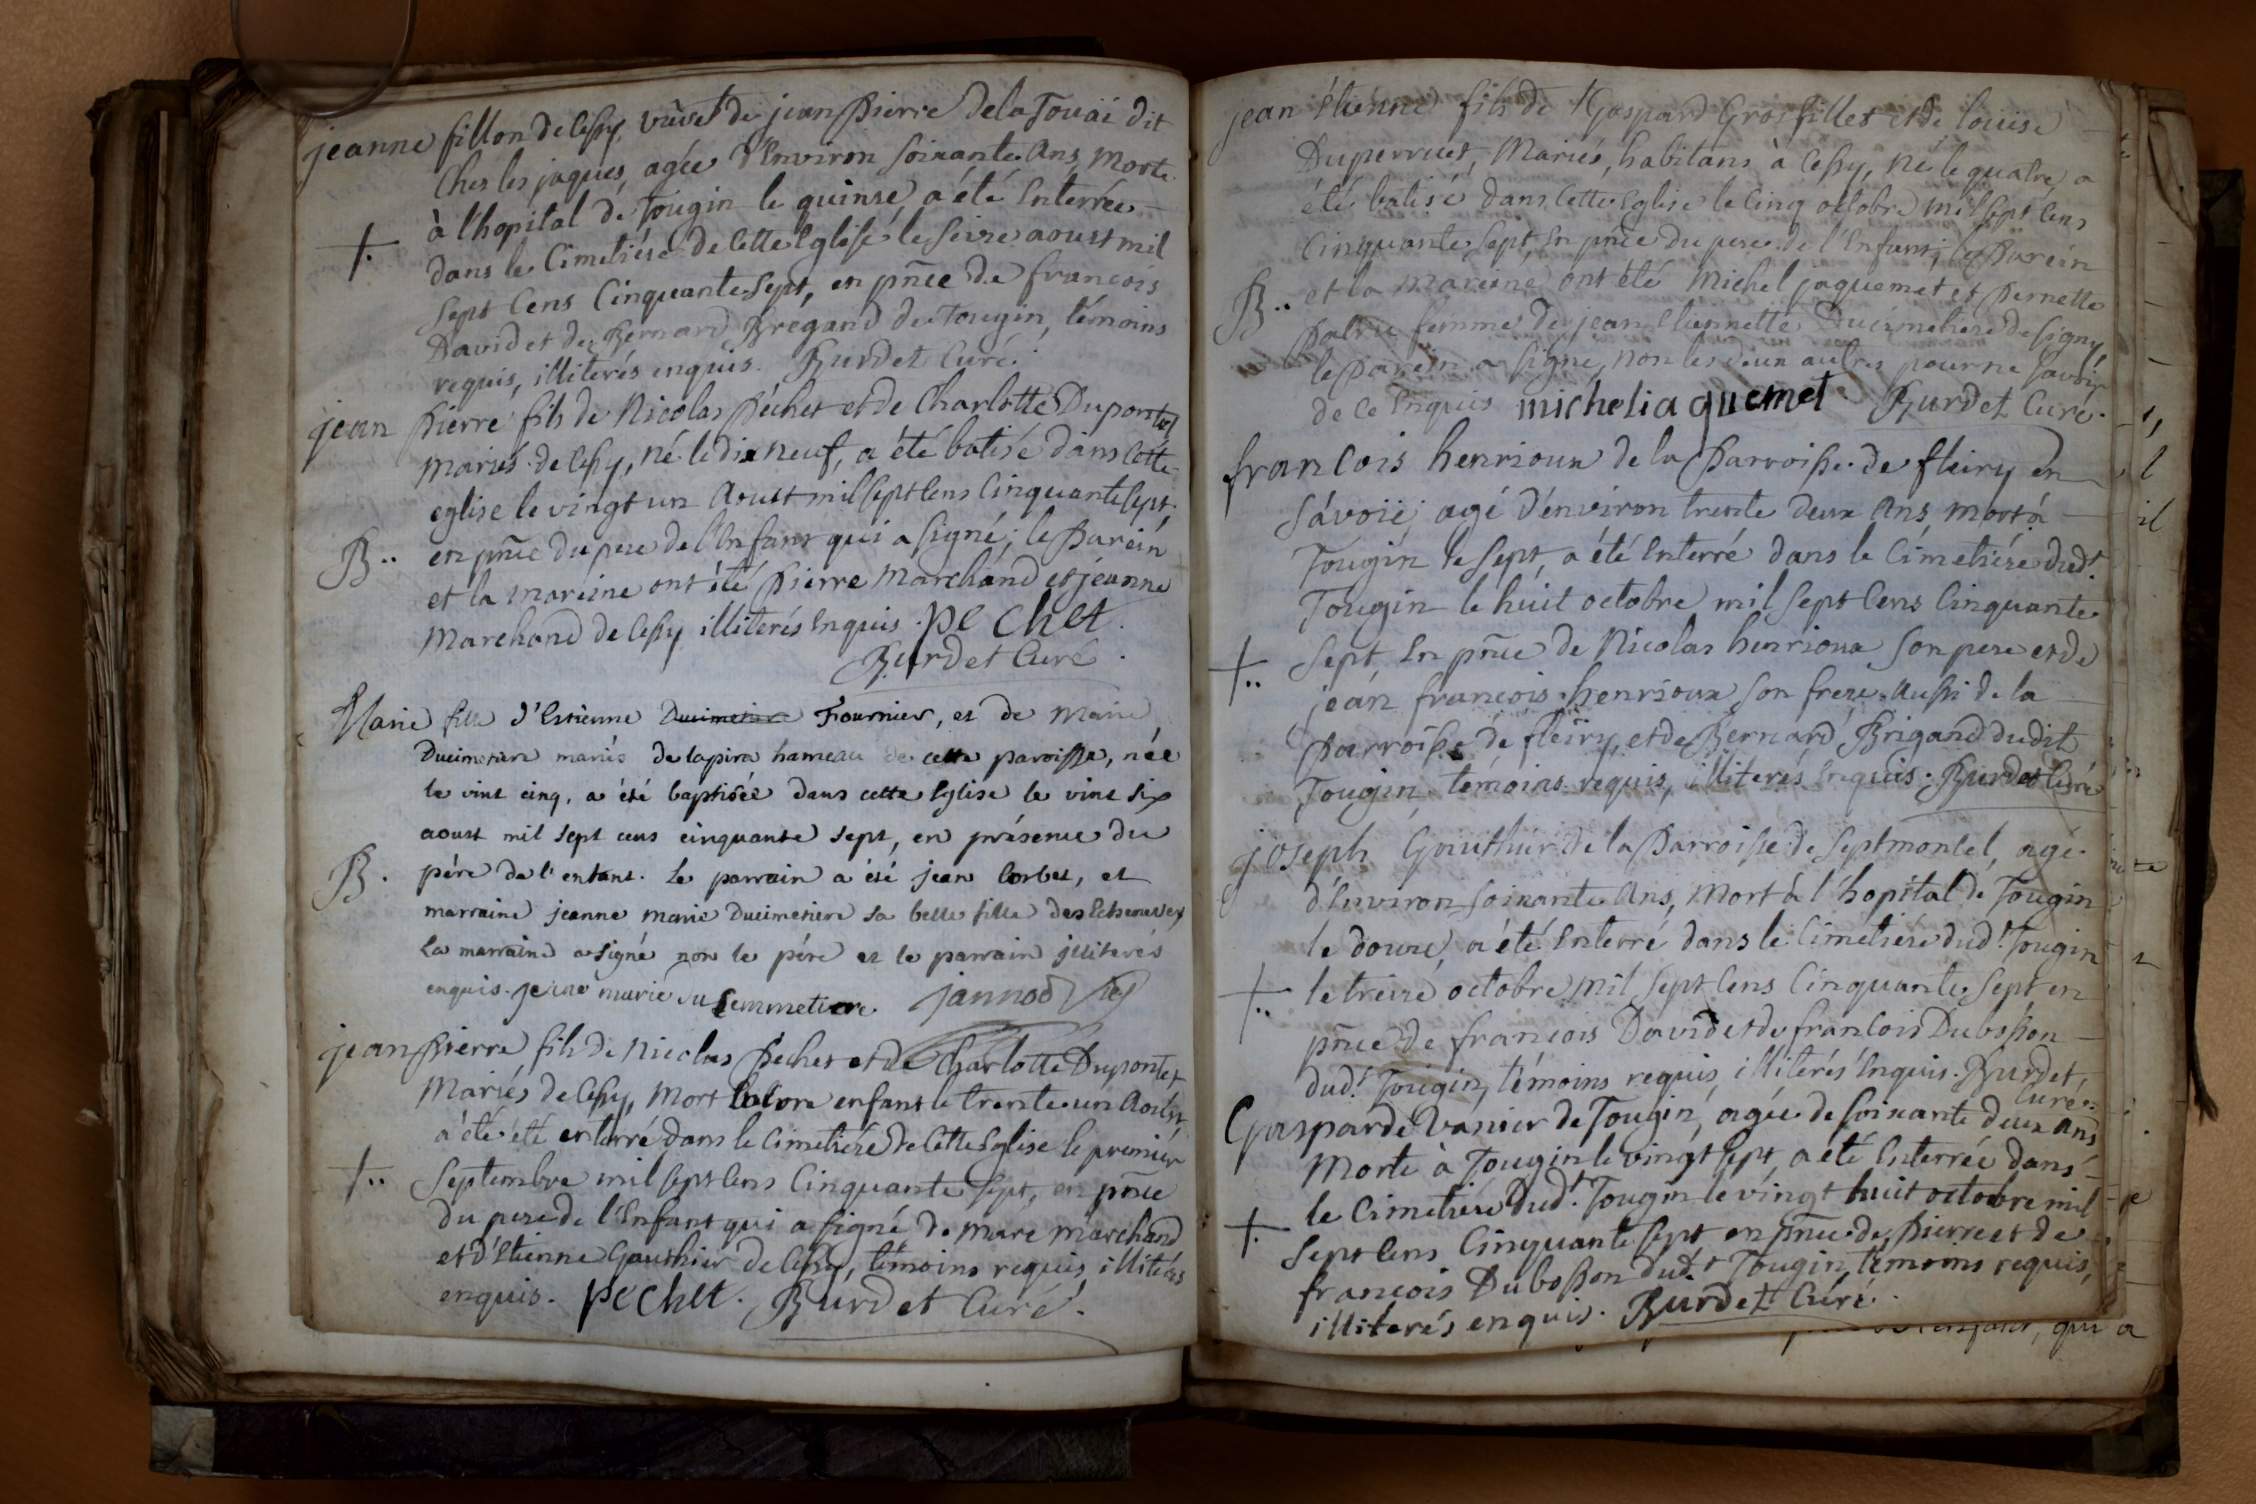 jeanne fillon de Cessy, vüve de jean Pierre Delatouaï dit
Ches les jaques, agée d'Environ soixante Ans, Morte
à l'hopital de Tougin le quinse, a été Enterrée
dans le Cimetiére de Cette Eglise le seize aoust mil
sept Cens Cinquante sept, en pñce de francois
David et de Bernard Bregand de Tougin, témoins
requis, illiterés enquis. Burdet Curé.
jean Pierre fils de Nicolas Péchet et de Charlotte Dupontet
Mariés de Cessy, né le dix neuf, a été batisé dans Cette
eglise le vingt un Aoust mil sept Cens Cinquante sept,
B.. en pñce du pere de l'Enfant qui a signé; le Parein
et la mareine ont été Pierre Marchand et jeanne
Marchand de Cessy illiterés Enquis. pechet.
Burdet Curé.
Marie fille d'Estienne Ducimetiere Fournier, et de Marie
Ducimetiere mariés de lapira hameau de cette paroisse, née
le vint cinq, a été baptisée dans cette Eglise le vint six
aoust mil sept cens cinquante sept, en présence du
B. pére de l'enfant. Le parrain a été jean Corbet, et
marraine jeanne marie Ducimetiere sa belle fille
La marraine a signé non le pére et le parrain jlliterés
enquis. jeane marie du semmetiere jannod
jean Pierre fils de Nicolas Pechet et de Charlotte Dupontet
Mariés de Cessy, Mort Encore enfant le trente un Aoust,
a été été enterré dans le Cimetiére de Cette Eglise le premier
Septembre mil sept Cens Cinquante sept, en pñce
du pere de l'Enfant qui a signé, de Marc Marchand
et d'Etienne Gauthier de Cessy, témoins requis, illiterés
enquis. pechet. Burdet Curé.
jean Etienne fils de Gaspard Grosfillet et de louise
Duperruet, Mariés, habitans à Cessy, né le quatre, a
été batisé dans Cette Eglise le Cinq octobre mil sept Cens
Cinquante sept, En pñce du pere de l'Enfant; le Parein
B.. et la Mareine ont été Michel jaquemet et Pernette
femme de jean Ducimetiere de signy,
le Parein a signé, non les deux autres pour ne savoir
de Ce Enquis micheliaquemet Burdet Curé.
francois henrioux de la Parroisse de fleiry en
Savoïe, agé d'énviron trente deux Ans, mort à
Tougin le sept, a été Enterré dans le Cimetiére dudt.
Tougin le huit octobre mil sept Cens Cinquante
sept, En pñce de Nicolas henrioux son pere et de
jean francois henrioux son frere, Aussi de la
Parroisse de fleiry, et de Bernard Brigand dudit
Tougin, témoins requis, illiterés Enquis. Burdet Curé
joseph Gouthier de la Parroisse de Septmontel, agé
d'Environ soixante Ans, Mort à l'hopital de Tougin
le douze, a été Enterré dans le Cimetiére dudt. Tougin
le treize octobre mil sept Cens Cinquante sept en
pñce de francois David et de francois Dubosson
dudt. Tougin, témoins requis, illiterés Enquis. Burdet,
Curé.
Gasparde Vanier de Tougin, agée de soixante deux Ans
Morte à Tougin le vingt sept, a été Enterrée dans
le Cimetiére dudt. Tougin le vingt huit octobre mil
sept Cens Cinquante sept en pñce de Pierre et de
francois Dubosson dudt. Tougin, témoins requis,
illiterés enquis. Burdet Curé.